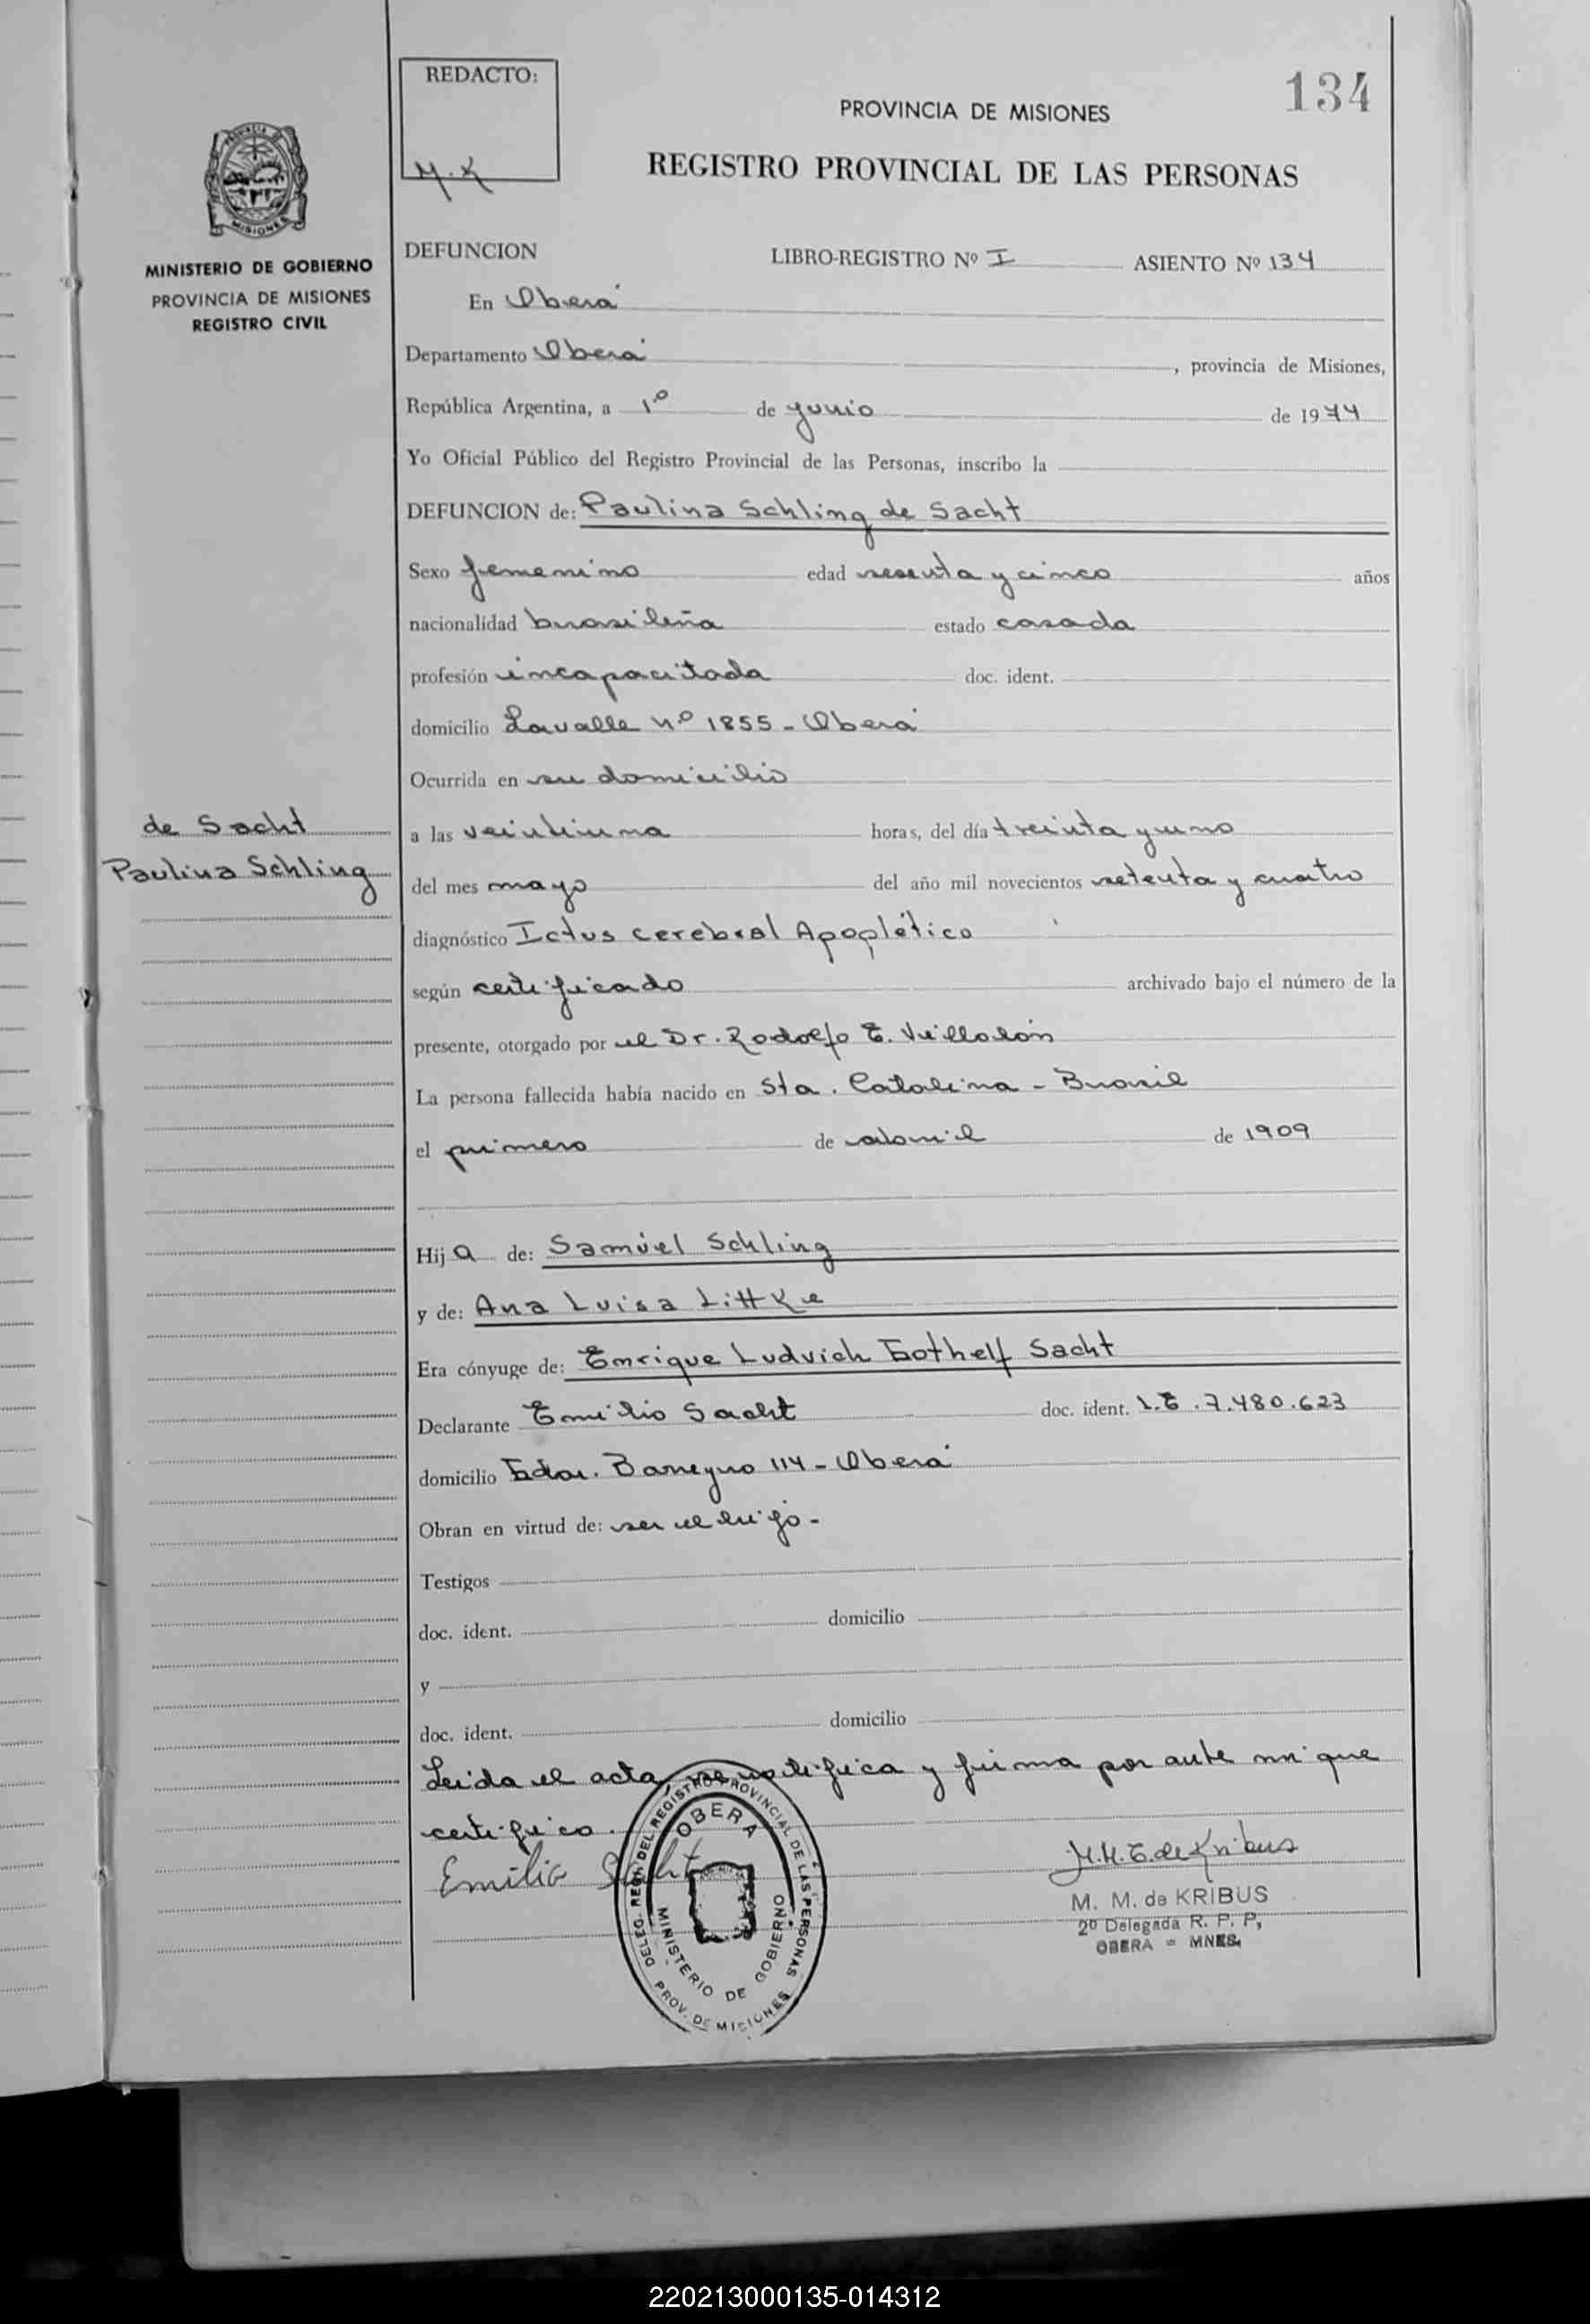 REDACTO:
M.K
134
PROVINCIA DE MISIONES
REGISTRO PROVINCIAL DE LAS PERSONAS
PROVINCIA DE
MISIONES
MINISTERIO DE GOBIERNO
PROVINCIA DE MISIONES
REGISTRO CIVIL
DEFUNCION LIBRO-REGISTRO Nº I ASIENTO Nº 134
En Oberá
Departamento Oberá, provincia de Misiones,
República Argentina, a 1º de junio de 1974
Yo Oficial Público del Registro Provincial de las Personas, inscribo la
DEFUNCION de: Paulina Schling de Sacht
Sexo femenino edad sesenta y cinco años
nacionalidad brasileña estado casada
profesión incapacitada doc. ident.
domicilio Lavalle Nº 1855 - Oberá
Ocurrida en su domicilio
de Sacht
Paulina Schling
a las veintiuna horas, del día treinta y uno
del mes mayo del año mil novecientos setenta y cuatro
diagnóstico Ictus Cerebral Apoplético
según certificado archivado bajo el número de la
presente, otorgado por el Dr. Rodolfo E. Villalón
La persona fallecida había nacido en Sta. Catalina - Brasil
el primero de abril de 1909
Hija de: Samúel Schling
y de: Ana Luisa Littke
Era cónyuge de: Enrique Ludvich Gothelf Sacht
Declarante Emilio Sacht doc. ident. L.E. 7.480.623
domicilio Gdor. Barreyro 114 - Oberá
Obran en virtud de: ser el hijo.-
Testigos
doc. ident. domicilio
y
doc. ident. domicilio
Leida el acta, se ratifica y firma por ante mi que
certifico.
Emilio Sacht
M.M.E. de Kribus
M. M. de KRIBUS
2º Delegada R. P. P,
OBERA - MNES.
DELEG. REGN. DEL REGISTRO PROVINCIAL DE LAS PERSONAS
OBERA
MINISTERIO DE GOBIERNO
PROV. DE MISIONES
220213000135-014312